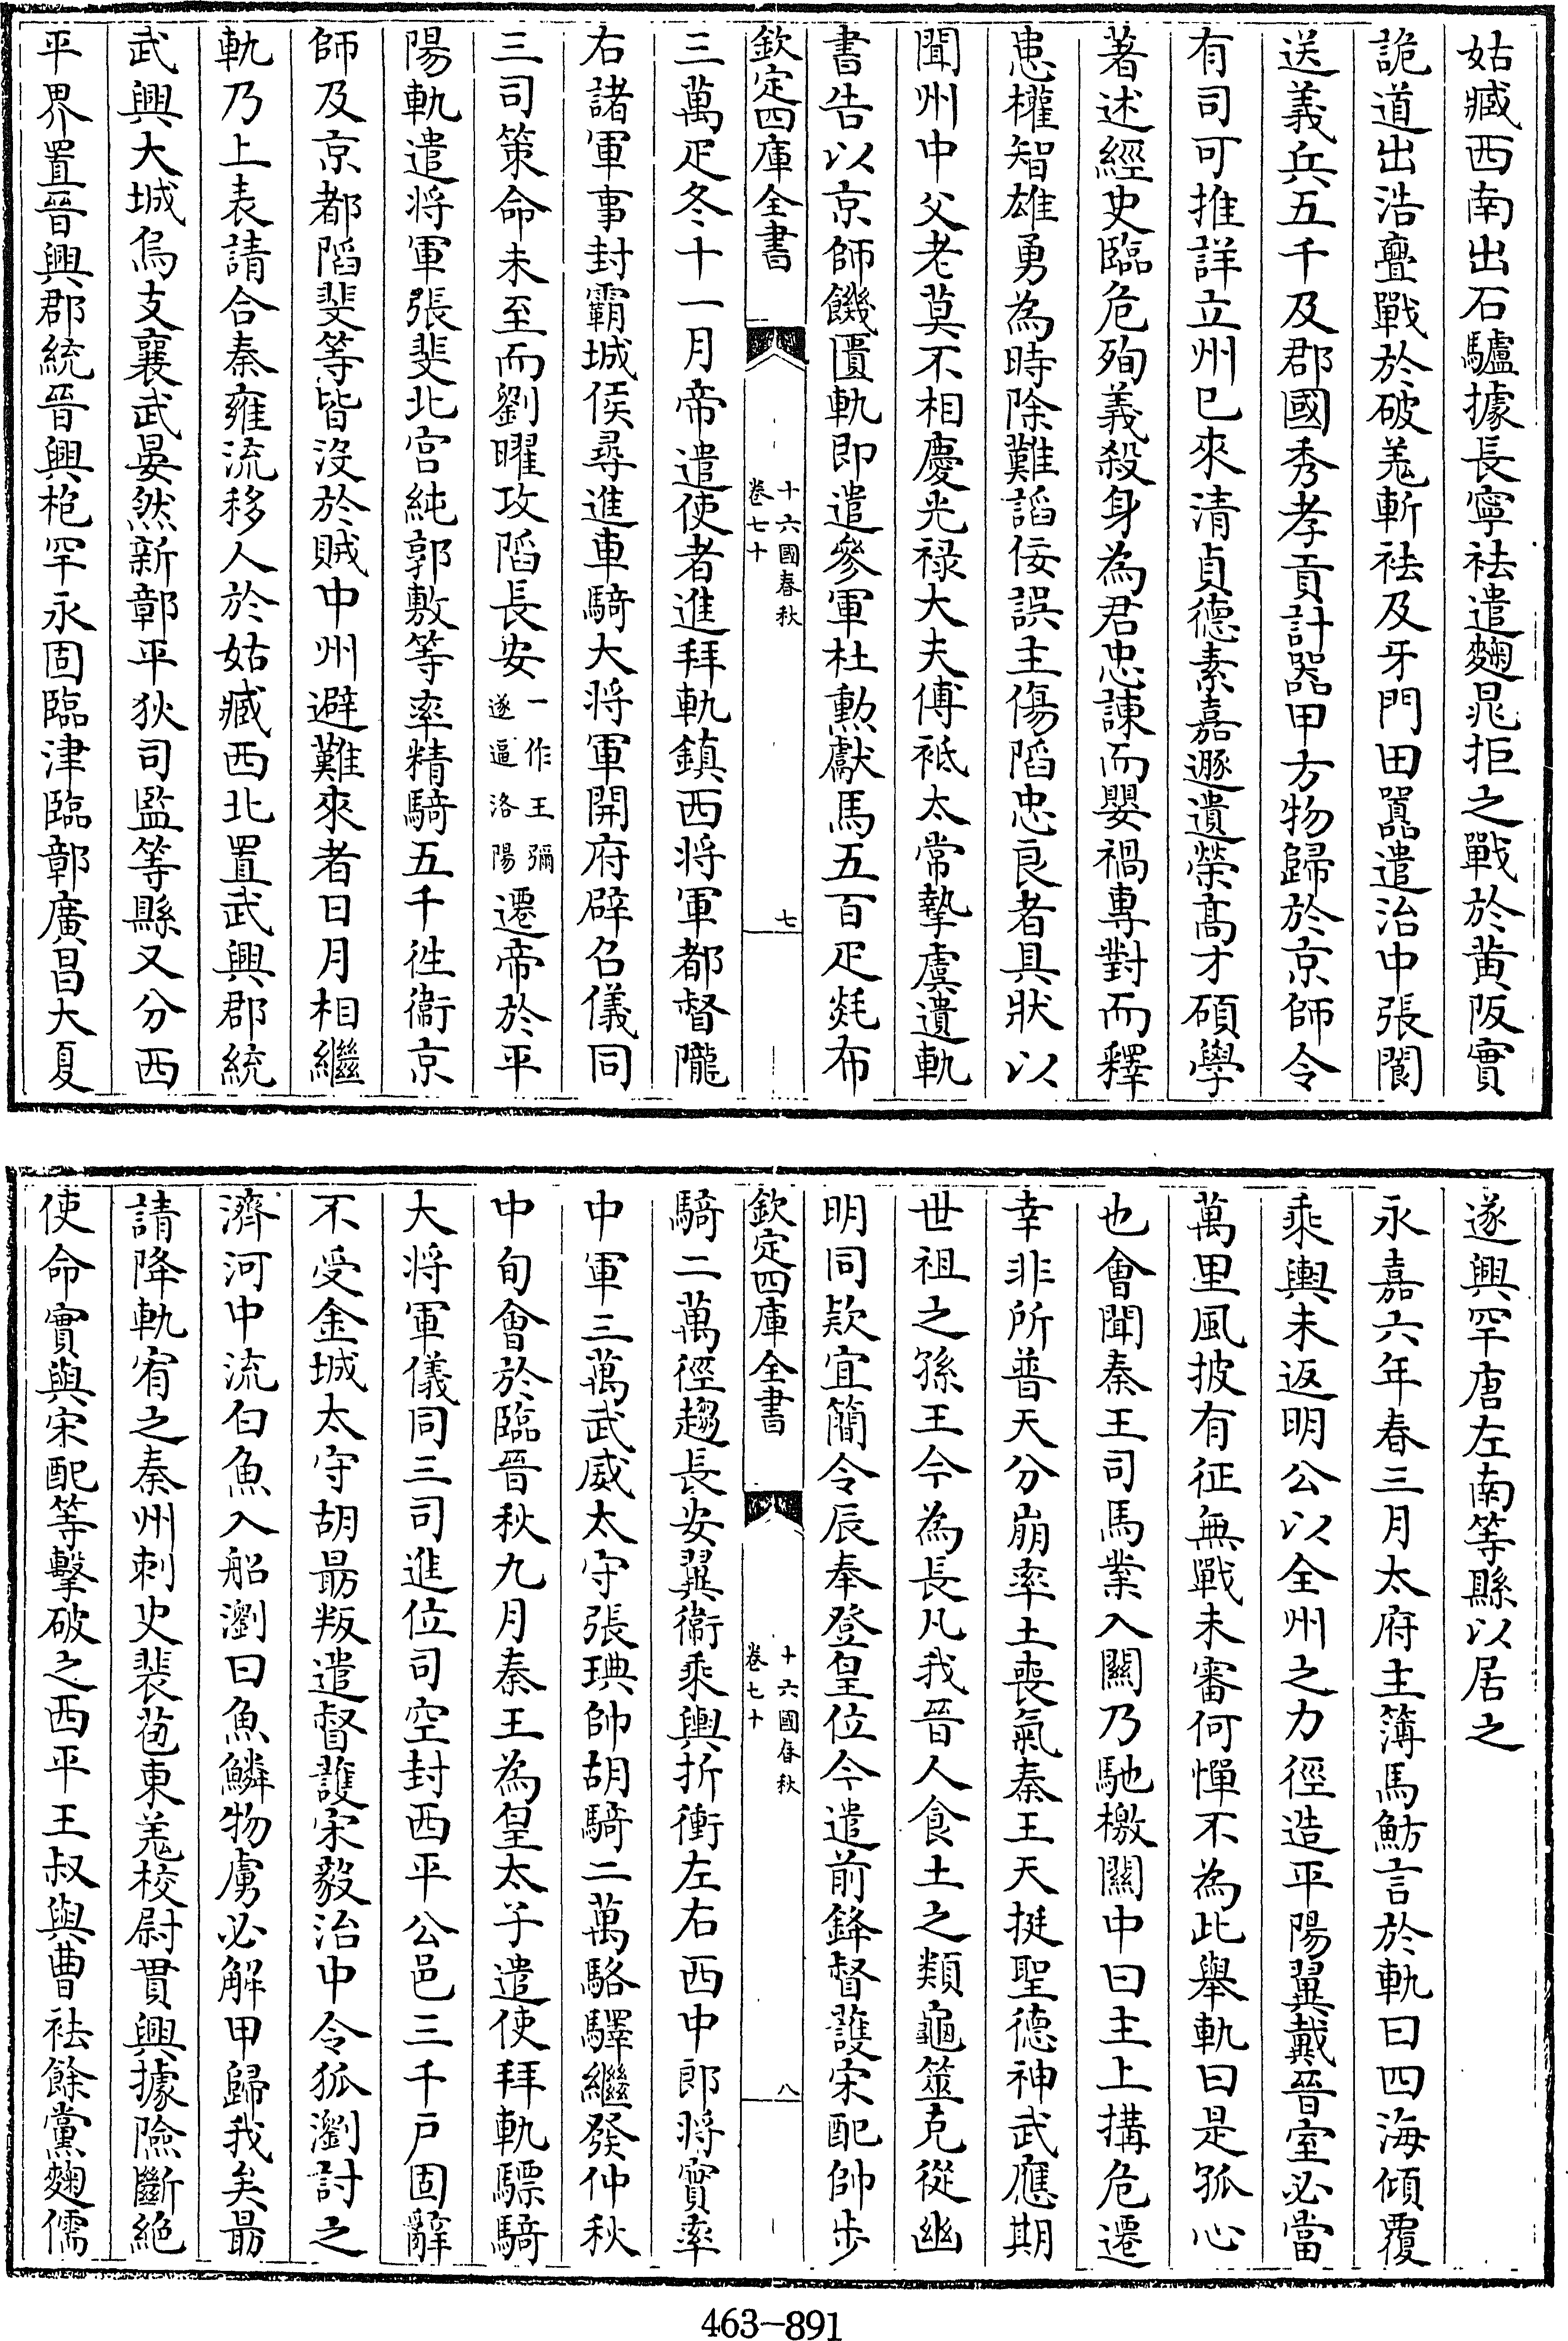 姑臧西南出石驢據長寧祛遣麹晁拒之戰於黄阪實
詭道出浩亹戰於破羗斬祛及牙門田囂遣治中張閬
送義兵五千及郡國秀孝貢計器甲方物歸於京師令
有司可推詳立州已來清貞德素嘉遯遺榮髙才碩學
著述經史臨危殉義殺身為君忠諫而嬰禍專對而釋
患權智雄勇為時除難謟佞誤主傷陷忠良者具狀以
聞州中父老莫不相慶光禄大夫傅祗太常摯虞遺軌
書告以京師饑匱軌即遣參軍杜勲獻馬五百疋毿布
欽定四庫全書
十六國春秋
卷七十
七
三萬疋冬十一月帝遣使者進拜軌鎮西将軍都督隴
右諸軍事封霸城侯尋進車騎大将軍開府辟召儀同
三司策命未至而劉曜攻陷長安一作王彌遂逼洛陽遷帝於平
陽軌遣将軍張斐北宫純郭敷等率精騎五千徃衞京
師及京都䧟斐等皆沒於賊中州避難來者日月相繼
軌乃上表請合秦雍流移人於姑臧西北置武興郡統
武興大城烏支襄武晏然新鄣平狄司監等縣又分西
平界置晉興郡統晉興枹罕永固臨津臨鄣廣昌大夏
遂興罕唐左南等縣以居之
永嘉六年春三月太府主簿馬魴言於軌曰四海傾覆
乘輿未返明公以全州之力徑造平陽翼戴晉室必當
萬里風披有征無戰未審何憚不為此舉軌曰是孤心
也會聞秦王司馬業入關乃馳檄關中曰主上搆危遷
幸非所普天分崩率土喪氣秦王天挺聖德神武應期
世祖之孫王今為長凡我晉人食土之類龜筮克從幽
明同欵宜簡令辰奉登皇位今遣前鋒督護宋配帥步
欽定四庫全書
十六國春秋
卷七十
八
騎二萬徑趨長安翼衞乘輿折衝左右西中郎将寔率
中軍三萬武威太守張琠帥胡騎二萬駱驛繼發仲秋
中旬會於臨晉秋九月秦王為皇太子遣使拜軌驃騎
大将軍儀同三司進位司空封西平公邑三千户固辭
不受金城太守胡勗叛遣督護宋毅治中令狐瀏討之
濟河中流白魚入船瀏曰魚鱗物虜必解甲歸我矣勗
請降軌宥之秦州刺史裴苞東羗校尉貫興據險斷絶
使命實與宋配等擊破之西平王叔與曹祛餘黨麹儒
463-891